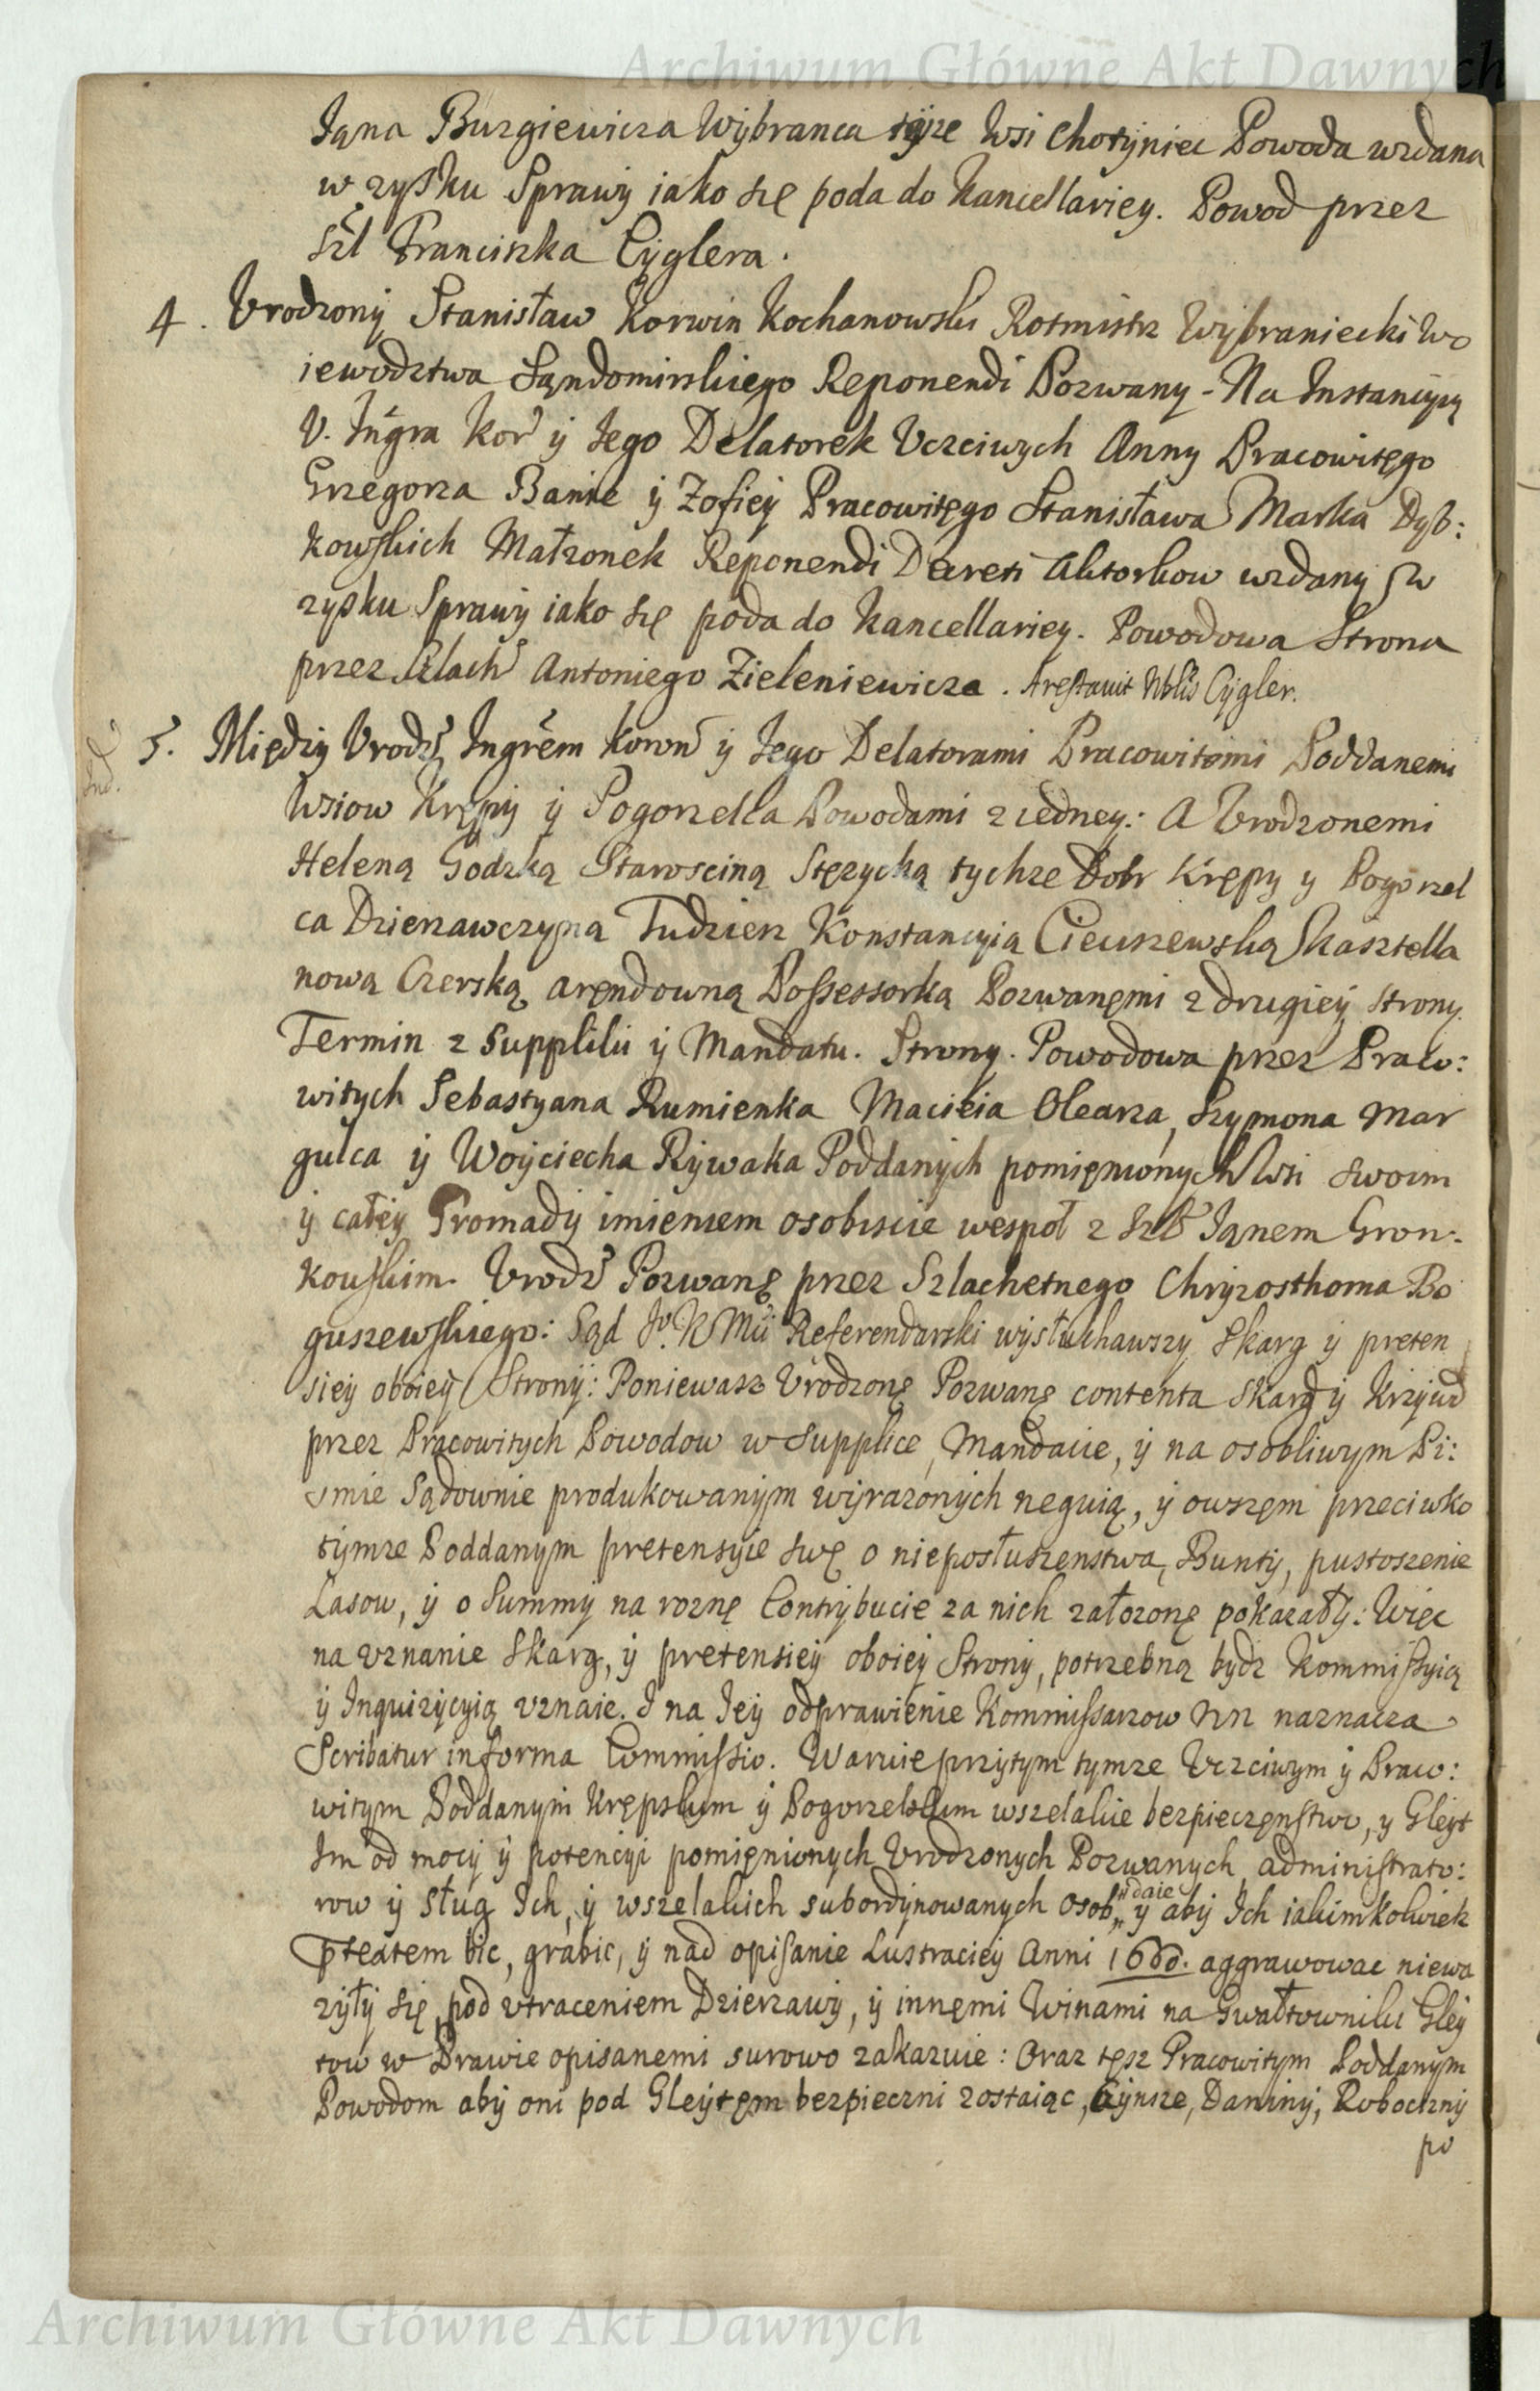 Archiwum Główne Akt Dawnych
Iana Burgiewicza Wybranca teyże Wsi Chotyniec Powoda wzdana
w zysku Sprawy iako się poda do Kancellariey. Powod przez
Szl Franciszka Cyglera.
4. Vrodzony Stanisław Korwin Kochanowski Rotmistrz Wybraniecki Wo
iewodztwa Sąndomirskiego Reponendi Pozwany - Na Instancyią
V. Instigra Kor y Iego Delatorek Vczciwych Anny Pracowitęgo
Grzegorza Banie y Zofiey Pracowitęgo Stanisława Marka Dyb:
kowskich Małzonek Reponendi Decreti Aktorkow wzdany w
zysku Sprawy iako się poda do Kancellariey. Powodowa Strona
przez Szlach Antoniego Zieleniewicza. Arestavit Nblis Cygler.
5. Między Vrodz Ingrem Koron y Iego Delatorami Pracowitemi Poddanemi
Wsiow Kręppy y Pogorzelca Powodami z iedney: A Vrodzonemi
Heleną Godzką Starosciną Stęzycką tychże Dobr Kręppy y Pogorzel
ca Dzierzawczyną Tudziez Konstancyią Cieciszewską Kasztella
nową Czerską aręndowną Possessorką Pozwanęmi z drugiey strony.
Termin z Suppliki y Mandatu. Strony. Powodowa przez Praco:
witych Sebastyana Rumienka Macieia Olearza, Szymona Mar
gulca y Woyciecha Rywaka Poddanych pomięnionych Wsi swoim
y całey Gromady imieniem osobiscie wespoł z Szl Iąnem Gron:
kowskim. Vrodz Pozwanę przez Szlachetnego Chryzosthoma Bo
guszewskiego: Sąd Io. K Mci Referendarski wysłuchawszy Skarg y preten
siey oboiey Strony: Poniewasz Vrodzonę Pozwanę contenta skarg y Krzywd
przez Pracowitych Powodow w Supplice, Mandacie, y na osobliwym Pi:
smie Sądownie produkowanym wyrazonych neguią, y owszęm przeciwko
tymze Poddanym pretensyie swę o nieposłuszenstwa, Bunty, pustoszenie
Lasow, y o Summy na roznę Contrybucie za nich załozonę pokazały: Więc
na vznanie Skarg, y pretensiey oboiey Strony, potrzebną bydz Kommissyią
y Inquizycyią vznaie. I na Iey odprawienie Kommissarzow NN naznacza
Scribatur in forma Commissio. Waruie przytym tymze Vczciwym y Praco:
witym Poddanym Kręppskim y Pogorzelskim wszelakie bezpieczęnstwo, y Gleyt
Im od mocy y potencyi pomięnionych Vrodzonych Pozwanych, administrato:
row y sług Ich, y wszelakich subordynowanych osob, daie y aby Ich iakimkolwiek
prętextem bic, grabic, y nad opisanie Lustraciey Anni 1660. aggrawowac niewa
zyły się, pod vtraceniem Dzierzawy, y innęmi Winami na Gwałtowniki Gley
tow w Prawie opisanemi surowo zakazuie: Oraz tęsz Pracowitym Poddanym
Powodom aby oni pod Gleytęm bezpieczni zostaiąc, Czynsze, Daniny, Roboczny
po
Archiwum Główne Akt Dawnych